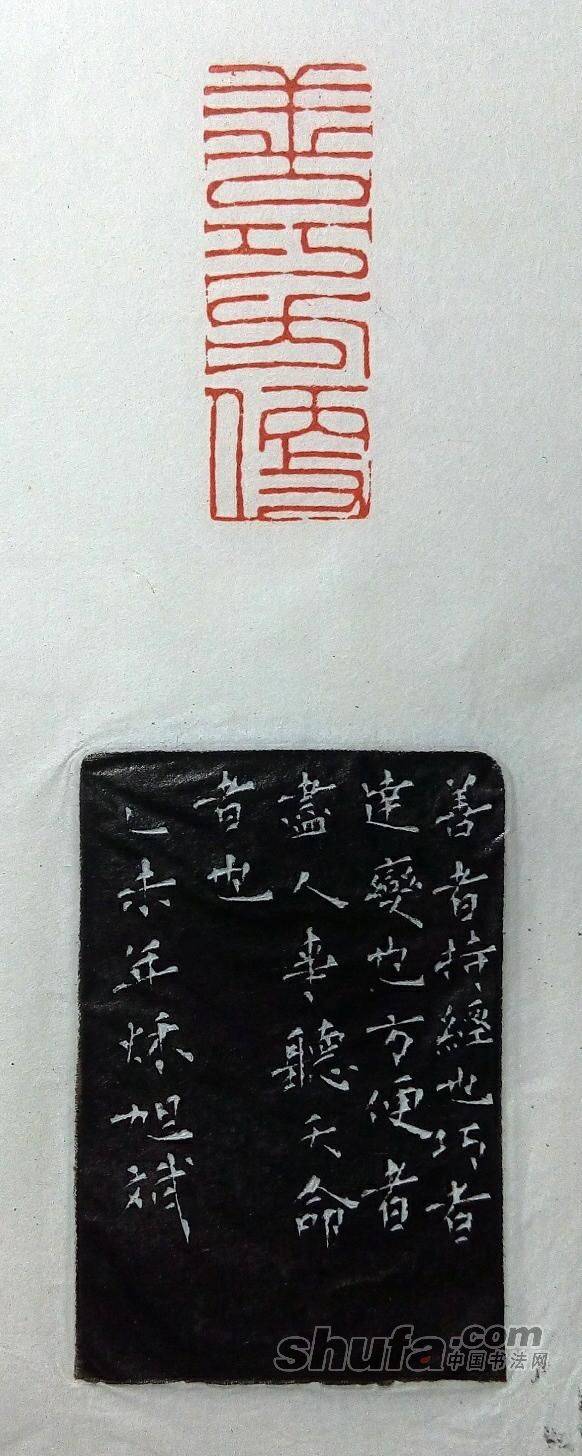 善巧方便
善者持經也巧者
達變也方便者
盡人事聽天命
者也
乙未年秋旭斌
shufa.com
中国书法网